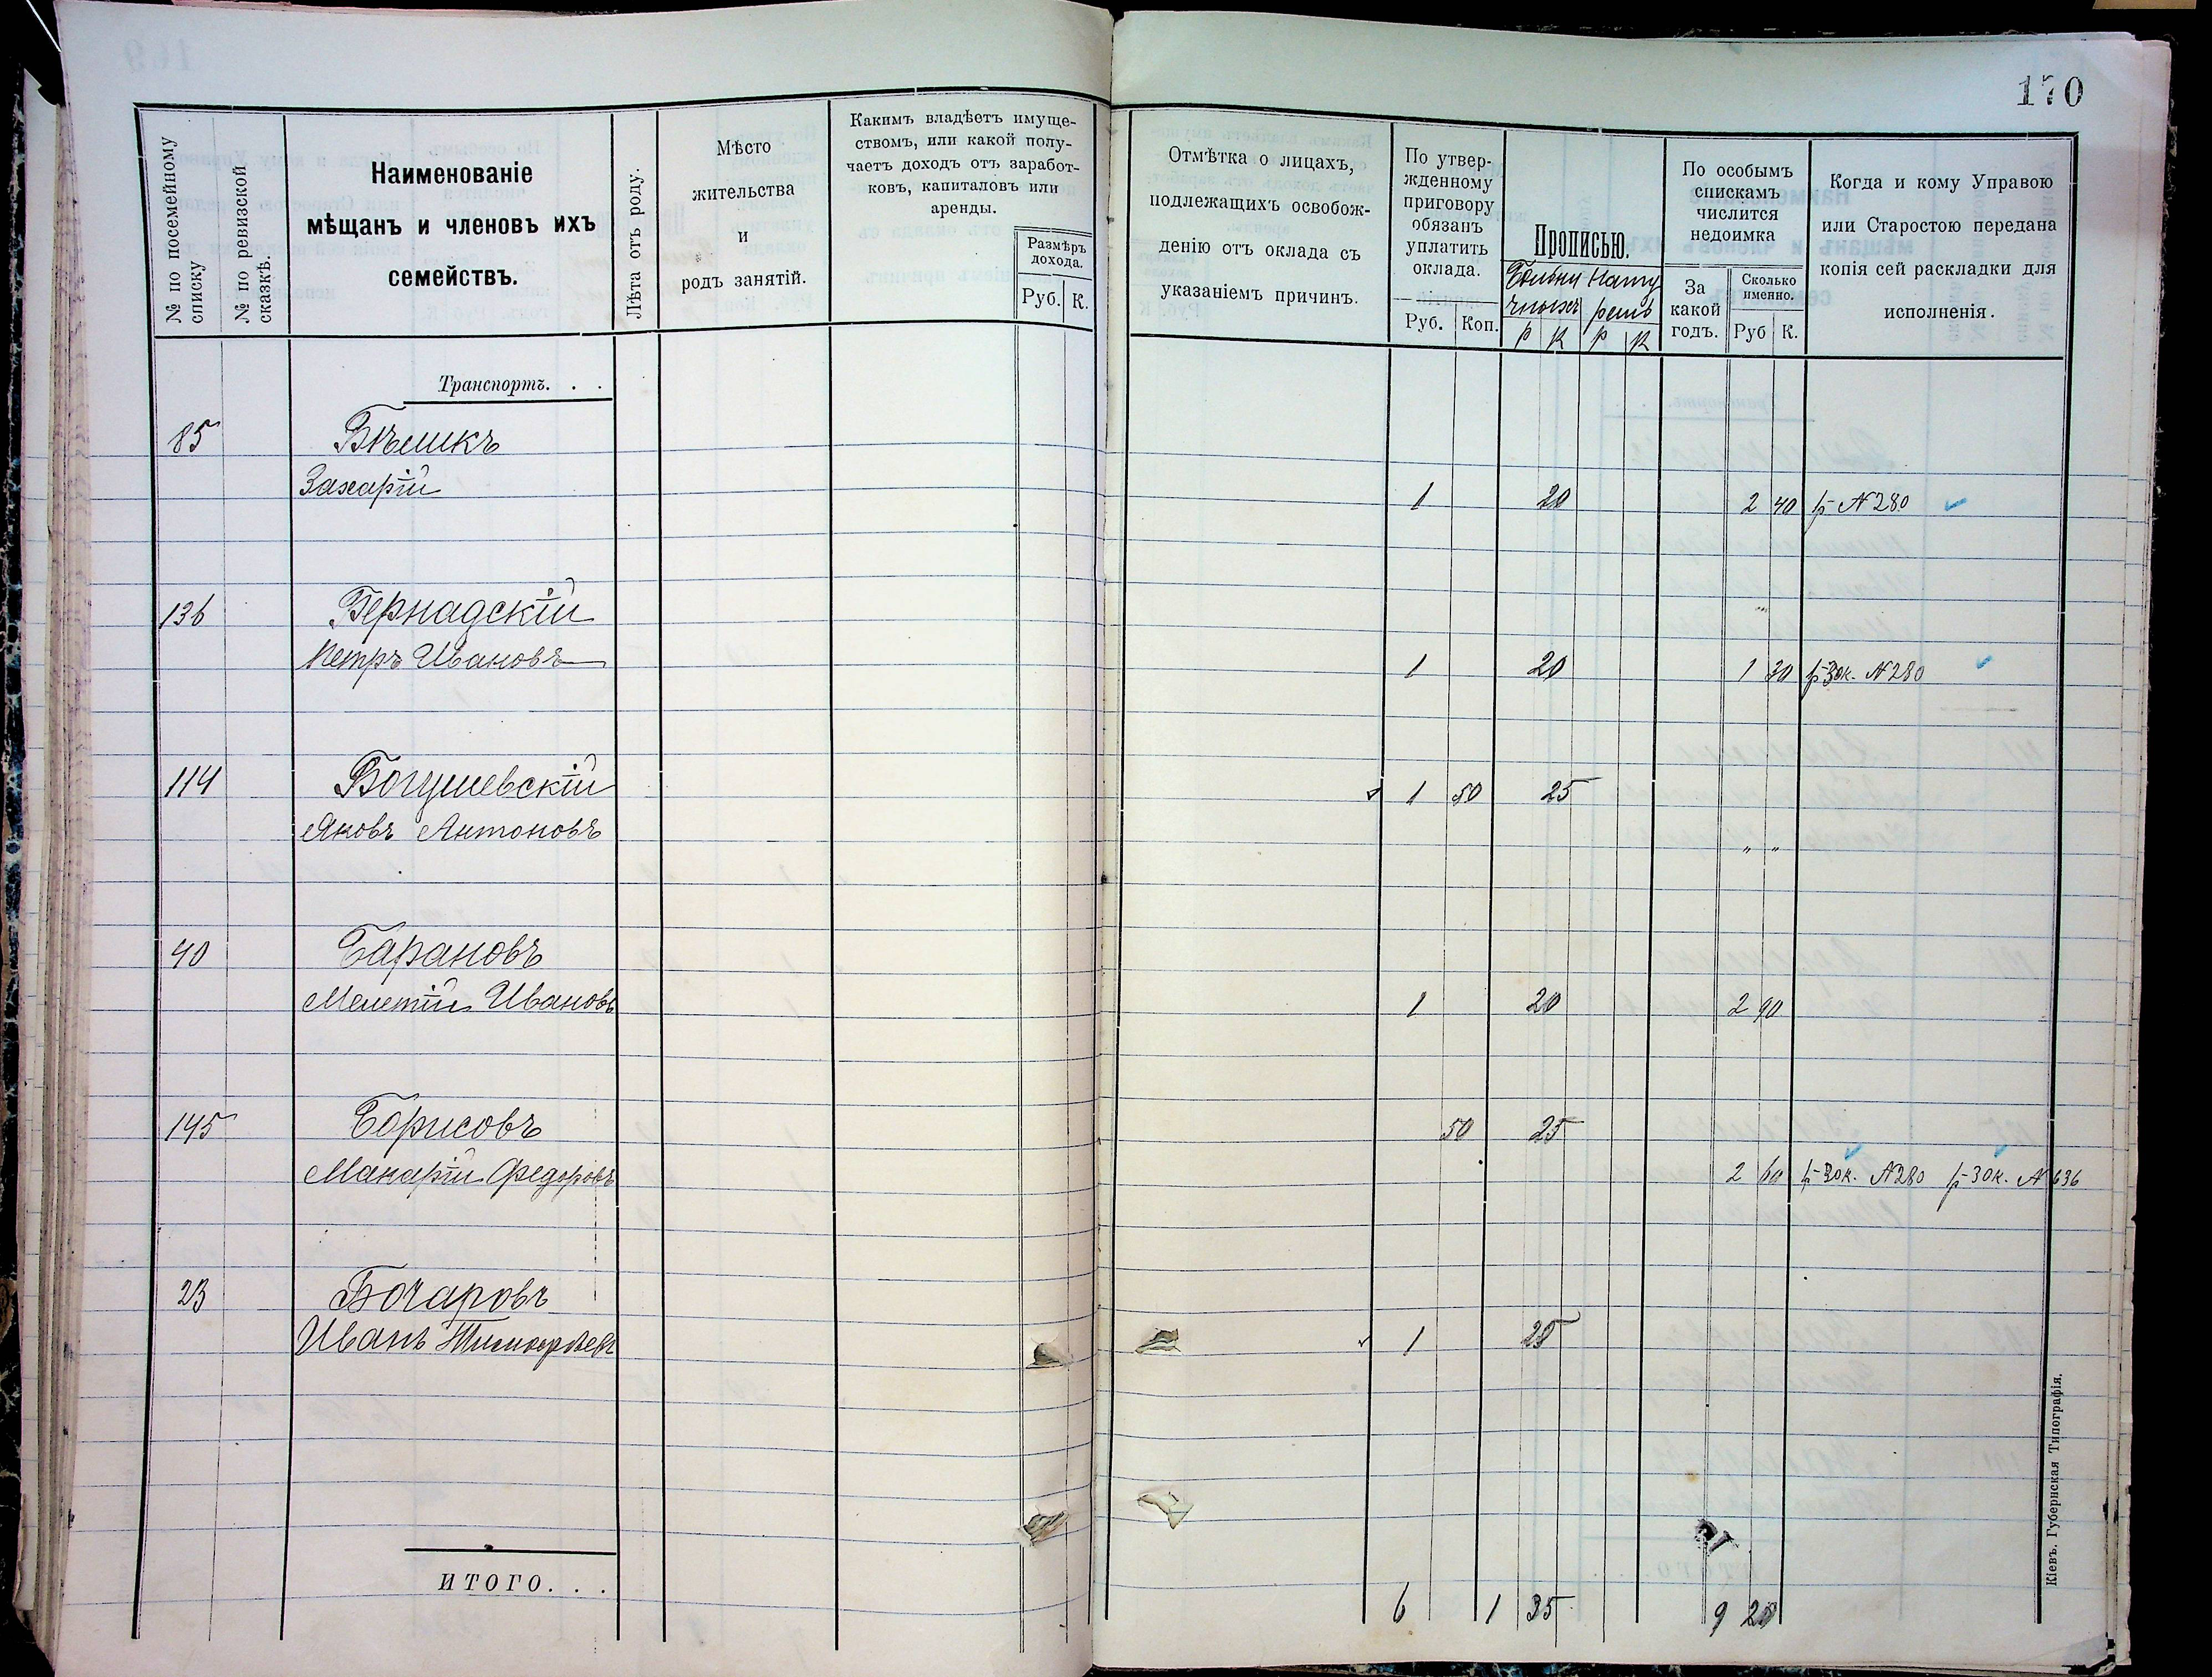 170
№ по посемейному списку
№ по ревизской сказкѣ.
Наименованіе
мѣщанъ и членовъ ихъ
семействъ.
Лѣта отъ роду.
Мѣсто
жительства
и
родъ занятій.
Какимъ владѣетъ имуще-
ствомъ, или какой полу-
чаетъ доходъ отъ заработ-
ковъ, капиталовъ или
аренды.
Размѣръ
дохода.
Руб. К.
Отмѣтка о лицахъ,
подлежащихъ освобож-
денію отъ оклада съ
указаніемъ причинъ.
По утвер-
жденному
приговору
обязанъ
уплатить
оклада.
Руб. Коп.
Прописью.
Больни Нату
чныхъ
Р К Р К
По особымъ
спискамъ
числится
недоимка
За
какой
годъ.
Сколько
именно.
Руб К.
Когда и кому Управою
или Старостою передана
копія сей раскладки для
исполненія.
Транспортъ. . .
85 Бѣликъ
Захарій 1 20 2 40 р- № 280
136 Бернадскій
Петръ Ивановъ 1 20 1 30 р-30к. № 280
114 Богушевскій 1 50 25
Яковъ Антоновъ " "
40 Барановъ
Мелетій Ивановъ 1 20 2 90
145 Борисовъ 50 25
Макарій Федоровъ 2 60 р-30к. № 280 р-30к. № 636
23 Бочаровъ
Иванъ Тимофѣевъ 1 25
ИТОГО. . . 6 1 35 9 20
Кіевъ. Губернская Типографія.